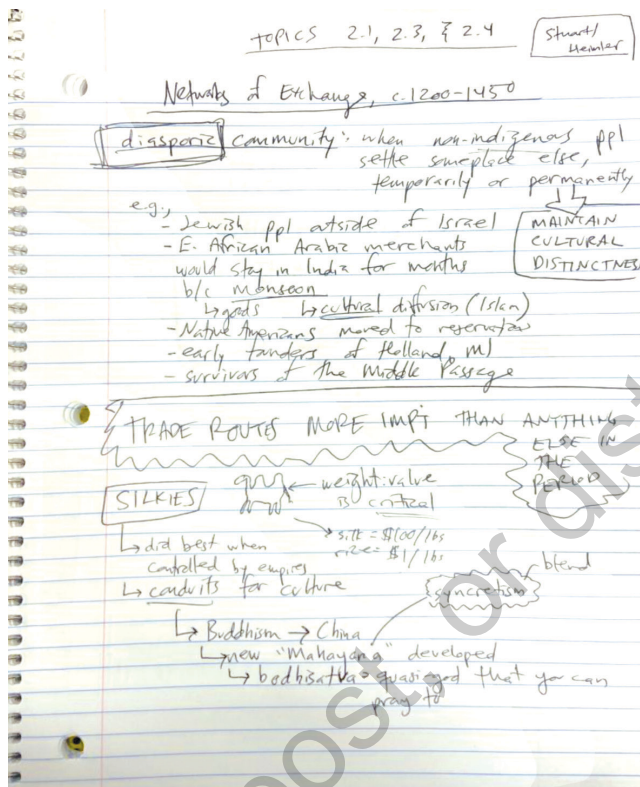 TOPICS 2.1, 2.3, & 2.4
Stuart/
Heimler
Networks of Exchange, c.1200-1450
diasporic community: when non-indigenous ppl
settle someplace else,
temporarily or permanently
e.g.,
- Jewish ppl outside of Israel
MAINTAIN
CULTURAL
DISTINCTNESS
- E. African Arabic merchants
would stay in India for months
b/c monsoon
↳ goods ↳ cultural diffusion (Islam)
- Native Americans moved to reservations
- early founders of Holland, MI
- survivors of the Middle Passage
TRADE ROUTES MORE IMPT THAN ANYTHING
ELSE IN
THE
PERIOD
SILKIES
← weight:value
is critical
silk = $100/lbs
rice = $1/lbs
↳ did best when
controlled by empires
↳ conduits for culture
blend
syncretism
↳ Buddhism → China
↳ new "Mahayana" developed
↳ bodhisatva = quasi-god that you can
pray to
post or dist